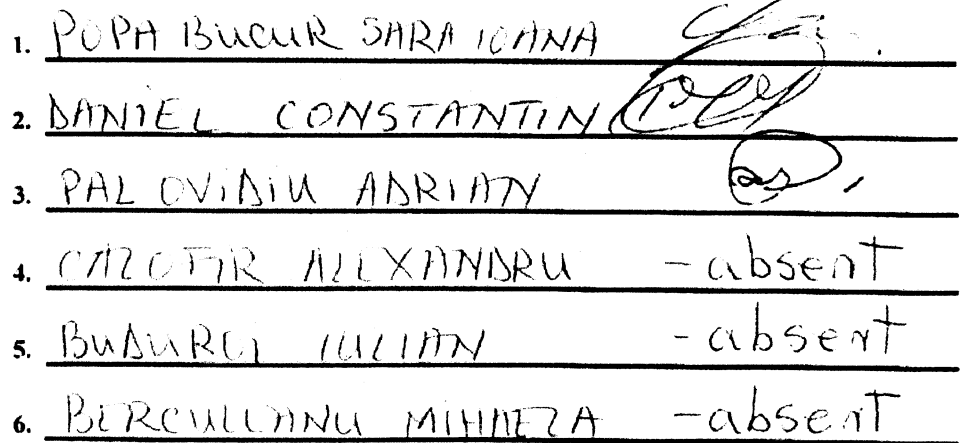 1. POPA BUCUR SARA IOANA
2. DANIEL CONSTANTIN
3. PAL OVIDIU ADRIAN
4. ALEXANDRU - absent
5. IULIAN - absent
6. BERCULEANU MIHAELA - absent